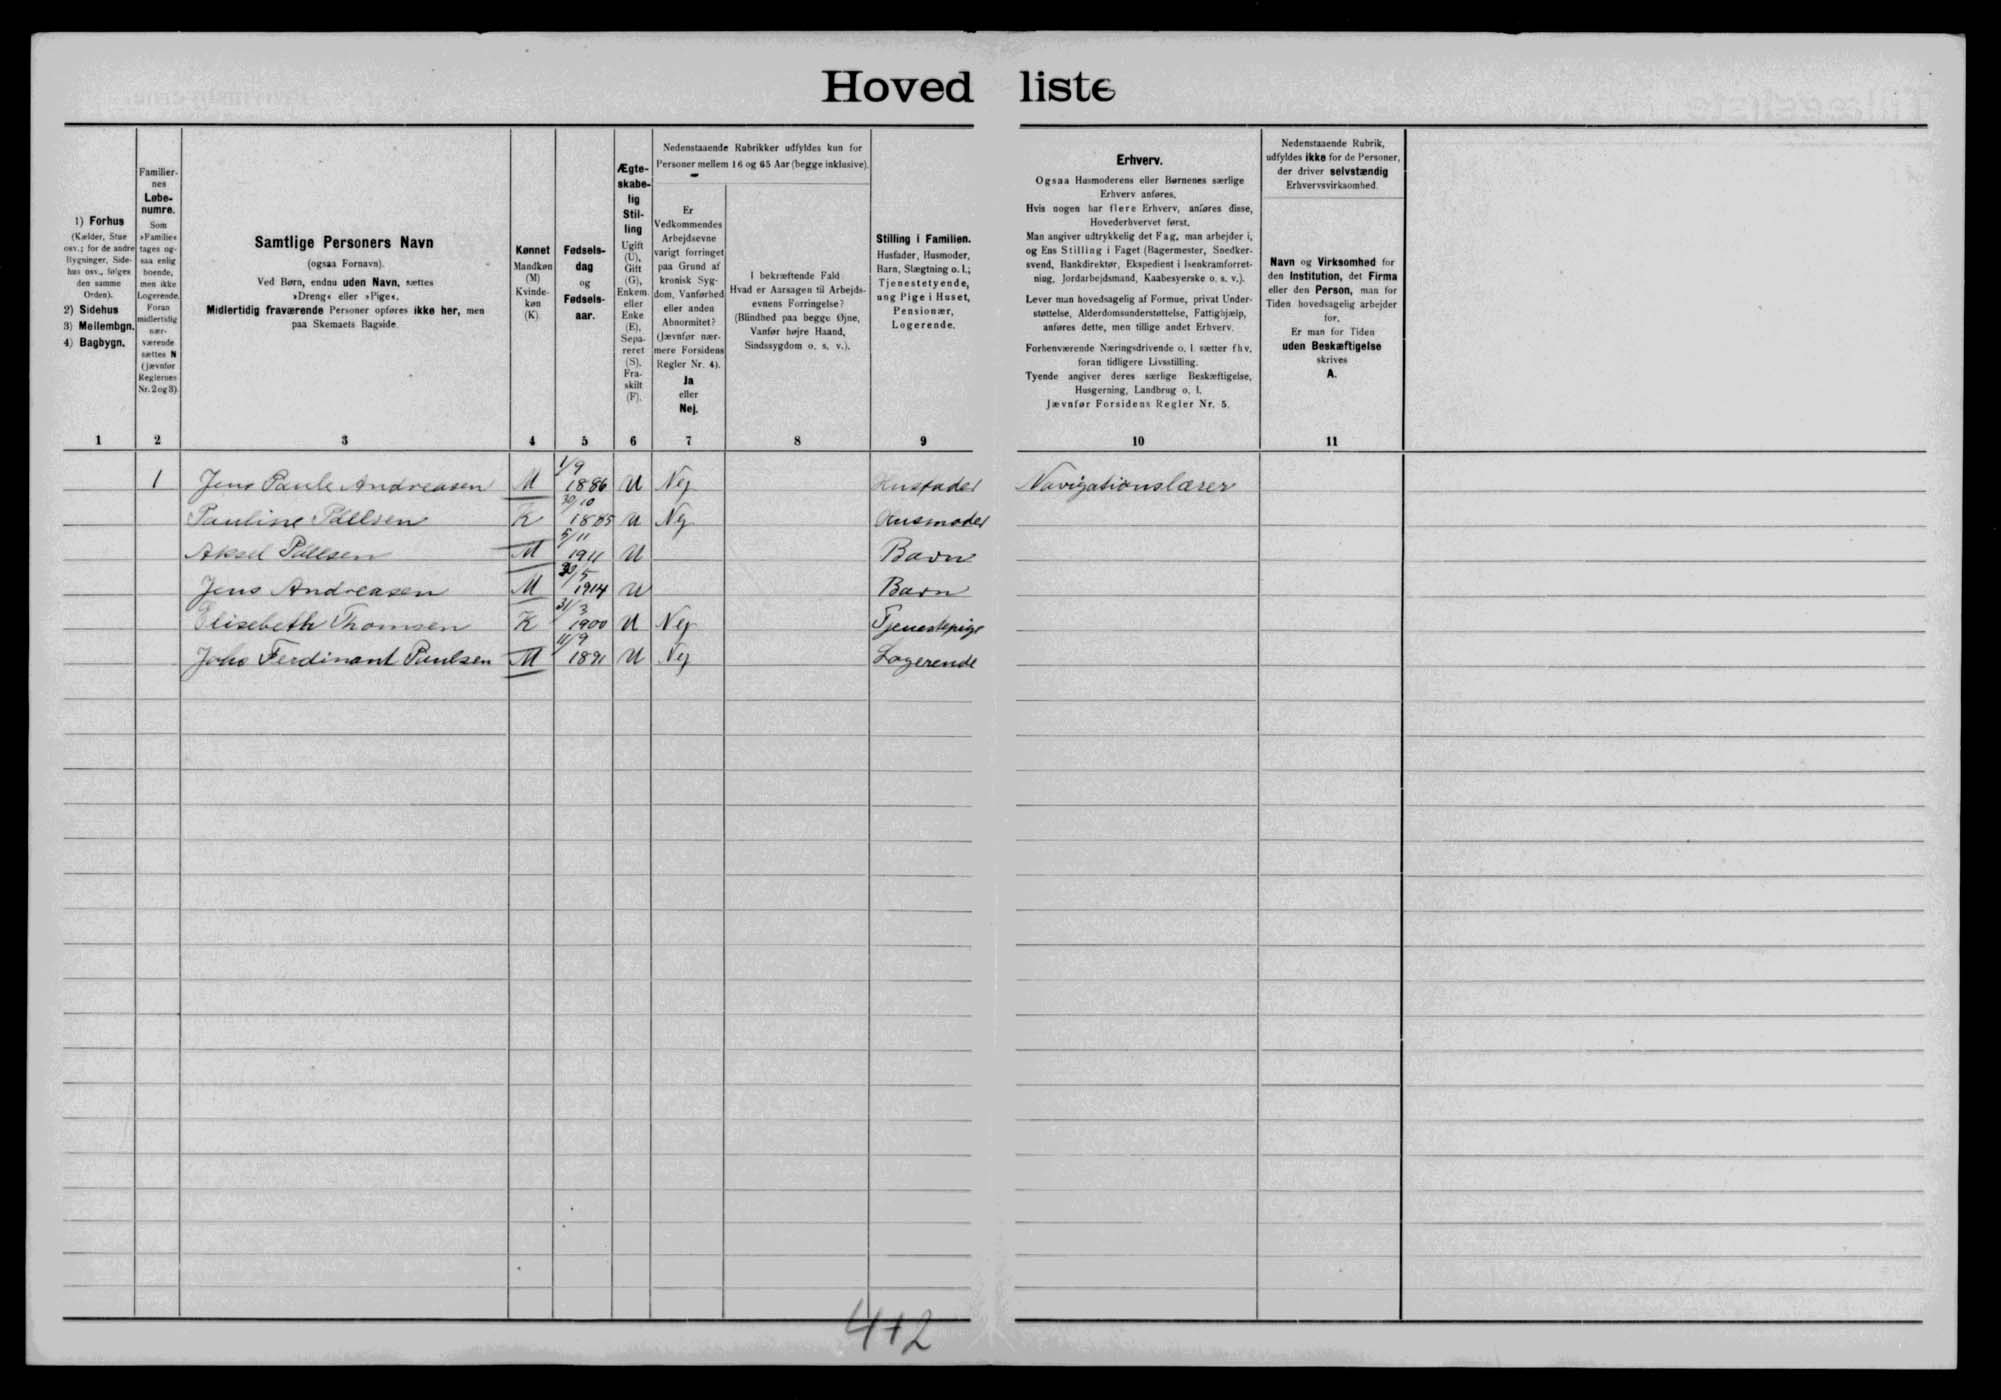 Hovedliste
1) Forhus
(Kælder, Stue
osv.; for de andre
Bygninger, Side-
hus osv., følges
den samme
Orden).
2) Sidehus
3) Mellembgn.
4) Bagbygn.
Familier-
nes
Løbe-
numre.
Som
»Familie«
tages og-
saa enlig
boende,
men ikke
Logerende.
Foran
midlertidig
nær-
værende
sættes N
(jævnfør
Reglernes
Nr. 2 og 3).
Samtlige Personers Navn
(ogsaa Fornavn).
Ved Børn, endnu uden Navn, sættes
»Dreng« eller »Pige«.
Midlertidig fraværende Personer opføres ikke her, men
paa Skemaets Bagside.
Kønnet
Mandkøn
(M)
Kvinde-
køn
(K).
Fødsels-
dag
og
Fødsels-
aar.
Ægte-
skabe-
lig
Stil-
ling
Ugift
(U),
Gift
(G),
Enkem.
eller
Enke
(E),
Sepa-
reret
(S),
Fra-
skilt
(F).
Nedenstaaende Rubrikker udfyldes kun for
Personer mellem 16 og 65 Aar (begge inklusive).
Er
Vedkommendes
Arbejdsevne
varigt forringet
paa Grund af
kronisk Syg-
dom, Vanførhed
eller anden
Abnormitet?
(Jævnfør nær-
mere Forsidens
Regler Nr. 4).
Ja
eller
Nej.
I bekræftende Fald
Hvad er Aarsagen til Arbejds-
evnens Forringelse?
(Blindhed paa begge Øjne,
Vanfør højre Haand,
Sindssygdom o. s. v.).
Stilling i Familien.
Husfader, Husmoder,
Barn, Slægtning o. l.;
Tjenestetyende,
ung Pige i Huset,
Pensionær,
Logerende.
Erhverv.
Ogsaa Husmoderens eller Børnenes særlige
Erhverv anføres.
Hvis nogen har flere Erhverv, anføres disse,
Hovederhvervet først.
Man angiver udtrykkelig det Fag, man arbejder i,
og Ens Stilling i Faget (Bagermester, Snedker-
svend, Bankdirektør, Ekspedient i Isenkramforret-
ning, Jordarbejdsmand, Kaabesyerske o. s. v.).
Lever man hovedsagelig af Formue, privat Under-
støttelse, Alderdomsunderstøttelse, Fattighjælp,
anføres dette, men tillige andet Erhverv.
Forhenværende Næringsdrivende o. l. sætter fhv.
foran tidligere Livsstilling.
Tyende angiver deres særlige Beskæftigelse,
Husgerning, Landbrug o. l.
Jævnfør Forsidens Regler Nr. 5.
Nedenstaaende Rubrik,
udfyldes ikke for de Personer,
der driver selvstændig
Erhvervsvirksomhed.
Navn og Virksomhed for
den Institution, det Firma
eller den Person, man for
Tiden hovedsagelig arbejder
for.
Er man for Tiden
uden Beskæftigelse
skrives
A.
1 2 3 4 5 6 7 8 9 10 11
1 Jens Paule Andreasen M 1/9 1886 U Nej Husfader Navigationslærer
Pauline Pallsen K 30/10 1885 U Nej Husmoder
Aksel Pallsen M 5/11 1911 U Barn
Jens Andreasen M 30/5 1914 U Barn
Elisebeth Thomsen K 31/3 1900 U Nej Tjenestepige
Joho Ferdinant Paulsen M 11/9 1891 U Nej Logerende
4+2